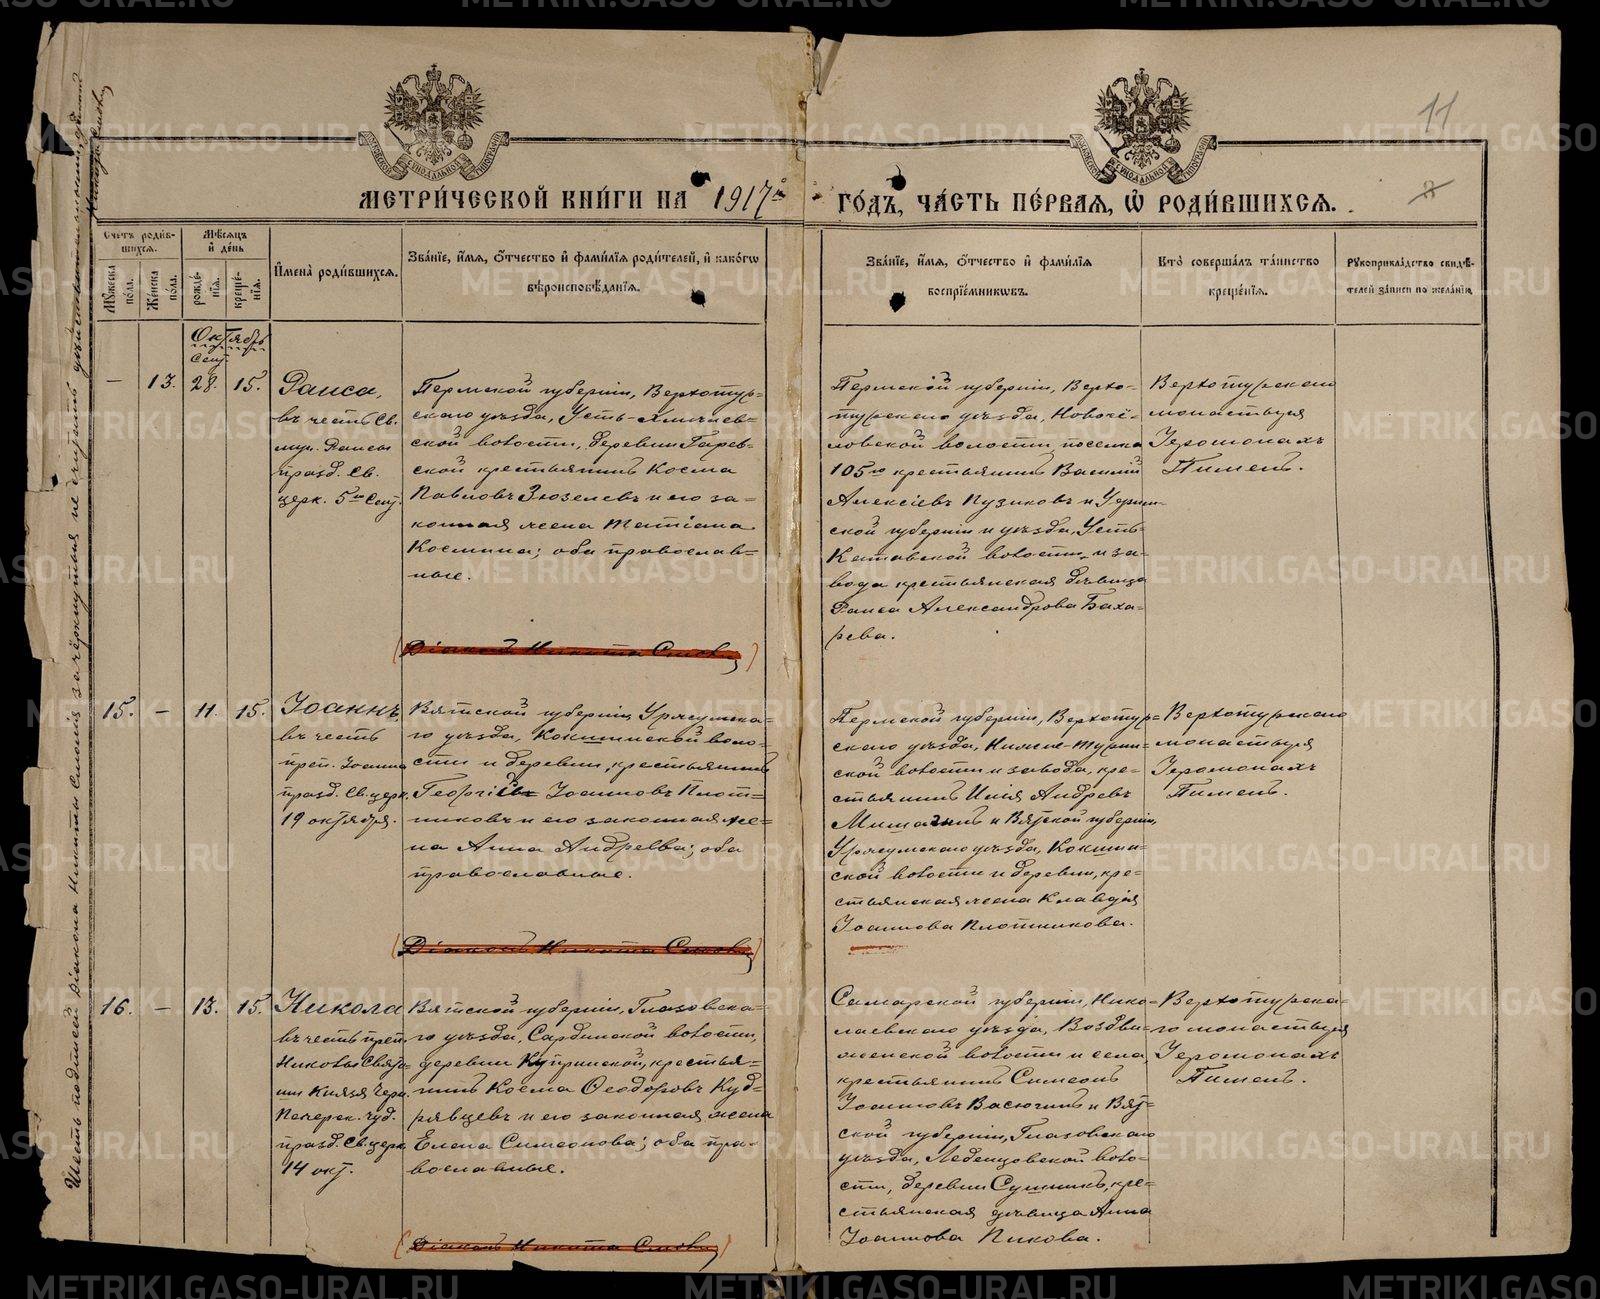 11
МЕТРИ́ЧЕСКОЙ КНИ́ГИ НА 1917й
ГО́ДЪ, ЧА́СТЬ ПЕ́РВАЯ, Ѡ҆ РОДИ́ВШИХСѦ.
Счетъ роди́в-
шихся.
Му́жеска
по́ла.
Же́нска
по́ла.
Мѣ́сяцъ
и҆ де́нь
рожде́-
нія.
креще́-
нія.
И҆мена̀ роди́вшихся.
Зва́нїе, и҆́мя, о҆́тчество и҆ фами́лїя роди́телей, и҆ како́гѡ
вѣроисповѣ́данїя.
Зва́нїе, и҆́мя, о҆́тчество и҆ фами́лїя
воспрїе́мникѡвъ.
Кто̀ соверша́лъ та́инство
креще́нїя.
Рꙋкоприкла́дство свидѣ́-
телей за́писи по жела́нію
Октябрь
Сент.
— 13. 28. 15.
Раиса,
въ честь Св.
муч. Раисы
празд. Св.
церк. 5го Сент.
Пермской губерніи, Верхотур=
скаго уѣзда,
ской волости, деревни Гарев=
ской крестьянинъ Косма
Павловъ Зюзелевъ и его за=
конная жена Татіана
Космина; оба православ=
ные.
Пермской губерніи, Верхо=
турскаго уѣзда,
ловской волости поселка
105го крестьянинъ Василій
Алексіевъ Пузиковъ и Уфим-
ской губерніи и уѣзда, Усть-
Катавской волости и за=
вода крестьянская дѣвица
Раиса Александрова Баха=
рева.
Верхотурскаго
монастыря
Іеромонахъ
Пименъ.
(Діаконъ Никита Смолинъ)
15. — 11. 15.
Іоаннъ
въ честь
преп. Іоанна
празд. Св. церк.
19 октября.
Вятской губерніи, Уржумска=
го уѣзда, Кокшинской воло=
сти и деревни, крестьянинъ
Георгій Іоанновъ Плот=
никовъ и его законная же=
на Анна Андреева; оба
православные.
Пермской губерніи, Верхотур=
скаго уѣзда, Нижне-Турин=
ской волости и завода, кре=
стьянинъ Илія Андреевъ
и Вятской губерніи,
Уржумскаго уѣзда, Кокшин=
ской волости и деревни, кре=
стьянская жена Клавдія
Іоаннова Плотникова.
Верхотурскаго
монастыря
Іеромонахъ
Пименъ.
(Діаконъ Никита Смолинъ)
16. — 13. 15.
Никола
въ честь преп.
Николы Свято=
ши Князя Черн.
Печерск. чуд.
празд. Св. церк.
14 окт.
Вятской губерніи, Глазовска=
го уѣзда, Сардинской волости,
деревни Купринской, крестья=
нинъ Косма Ѳеодоровъ Куд=
рявцевъ и его законная жена
Елена Симеонова; оба пра=
вославные.
Самарской губерніи, Нико=
лаевскаго уѣзда, Воздви=
женской волости и села,
крестьянинъ Симеонъ
Іоанновъ Васючинъ и Вят=
ской губерніи, Глазовскаго
уѣзда, Лебенцовской воло=
сти, деревни, кре=
стьянская дѣвица Анна
Іоаннова Пикова.
Верхотурска=
го монастыря
Іеромонахъ
Пименъ.
(Діаконъ Никита Смолинъ)
Шесть подписей Діакона Никиты Смолина зачёркнутыя не считать дѣйствительными, діаконъ
Никита Смолинъ
METRIKI.GASO-URAL.RU